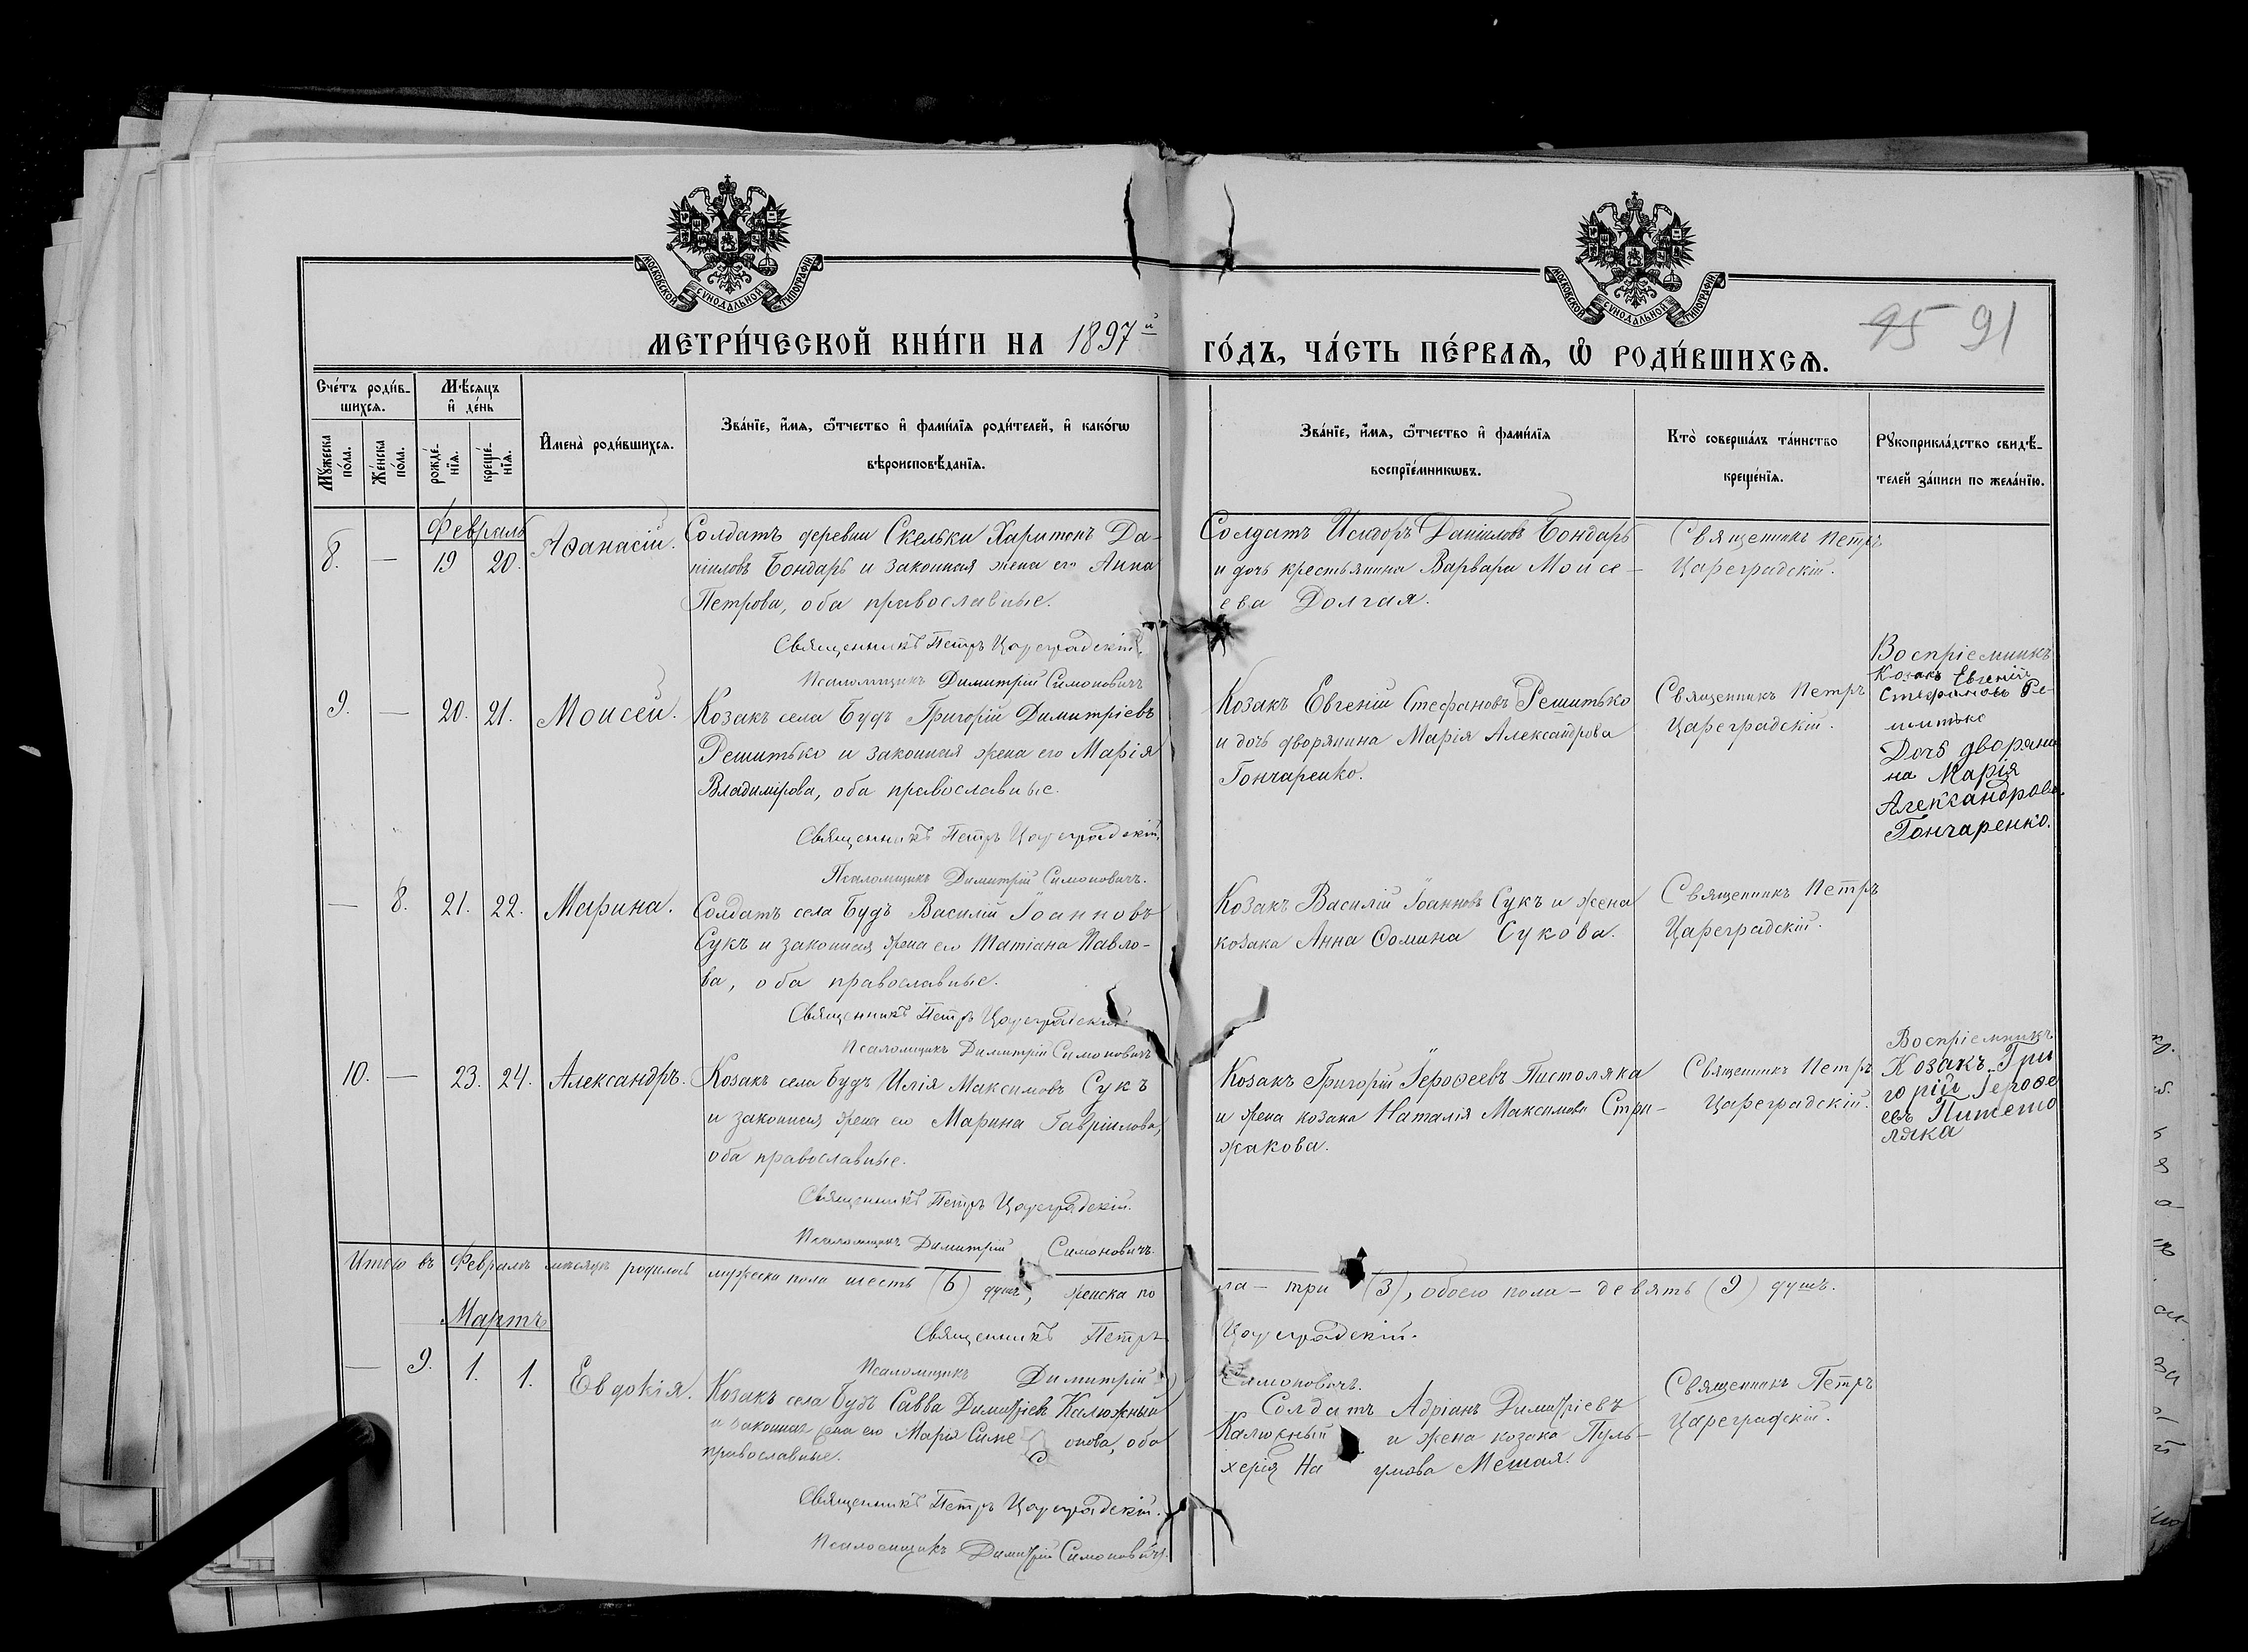 МОСКОВСКОЙ СУНОДАЛЬНОЙ ТИПОГРАФІИ
МОСКОВСКОЙ СУНОДАЛЬНОЙ ТИПОГРАФІИ
95 91
МЕТРИ́ЧЕСКОЙ КНИ́ГИ НА 1897й
ГО́ДЪ, ЧА́СТЬ ПЕ́РВАѦ, Ѡ РОДИ́ВШИХСѦ.
Сче́тъ роди́в-
шихсѧ.
Мѣ́сѧцъ
и҆ де́нь
Мꙋ́жеска
по́ла.
Же́нска
по́ла.
рожде́-
нїѧ.
креще́-
нїѧ.
И҆мена̀ роди́вшихсѧ.
Зва́нїе, и҆́мѧ, ѻ҆́тчество и҆ фами́лїѧ роди́телей, и҆ како́гѡ
вѣроисповѣ́данїѧ.
Зва́нїе, и҆́мѧ, ѻ҆́тчество и҆ фами́лїѧ
воспрїе́мникѡвъ.
Кто̀ соверша́лъ та́инство
креще́нїѧ.
Рꙋкоприкла́дство свидѣ́-
телей за́писи по жела́нїю.
Февраль
8. — 19 20. Аѳанасій.
Солдатъ деревни Скельки Харитонъ Да-
ніиловъ Бондарь и законная жена его Анна
Петрова, оба православные.
Священникъ Петръ Цареградскій.
Псаломщикъ Димитрій Симоновичъ
Солдатъ Исидоръ Даніиловъ Бондарь
и дочь крестьянина Варвара Моисе-
ева Долгая.
Священникъ Петръ
Цареградскій.
9. — 20. 21. Моисей.
Козакъ села Будъ Григорій Димитріевъ
Решитько и законная жена его Марія
Владимірова, оба православные.
Священникъ Петръ Цареградскій.
Псаломщикъ Димитрій Симоновичъ.
Козакъ Евгеній Стефановъ Решитько
и дочь дворянина Марія Александрова
Гончаренко.
Священникъ Петръ
Цареградскій.
Воспріемникъ
Козакъ Евгеній
Стефановъ Ре-
шитько
Дочь дворяни
на Марія
Александрова
Гончаренко.
— 8. 21. 22. Марина.
Солдатъ села Будъ Василій Іоанновъ
Сукъ и законная жена его Татіана Павло-
ва, оба православные.
Священникъ Петръ Цареградскій.
Псаломщикъ Димитрій Симоновичъ
Козакъ Василій Іоанновъ Сукъ и жена
козака Анна Ѳомина Сукова.
Священникъ Петръ
Цареградскій.
10. — 23. 24. Александръ.
Козакъ села Будъ Илія Максимовъ Сукъ
и законная жена его Марина Гавріилова,
оба православные.
Священникъ Петръ Цареградскій.
Псаломщикъ Димитрій Симоновичъ.
Козакъ Григорій Іероѳеевъ Пистоляка
и жена козака Наталія Максимова Стри-
жакова.
Священникъ Петръ
Цареградскій.
Воспріемникъ
Козакъ Гри
горій Іероѳе
евъ
ляка
Итого въ Февралѣ мѣсяцѣ родилось мужеска пола шесть (6) душъ, женска по
ла — три (3), обоего пола — девять (9) душъ.
Священникъ Петръ
Цареградскій.
Псаломщикъ Димитрій
Симоновичъ.
Мартъ
— 9. 1. 1. Евдокія.
Козакъ села Будъ Савва Димитріевъ Калюжный
и законная жена его Марія Симе онова, оба
православные.
Священникъ Петръ Цареградскій.
Псаломщикъ Димитрій Симоновичъ.
Солдатъ Адріанъ Димитріевъ
Калюжный и жена козака Пуль-
херія На умова Мешая.
Священникъ Петръ
Цареградскій.